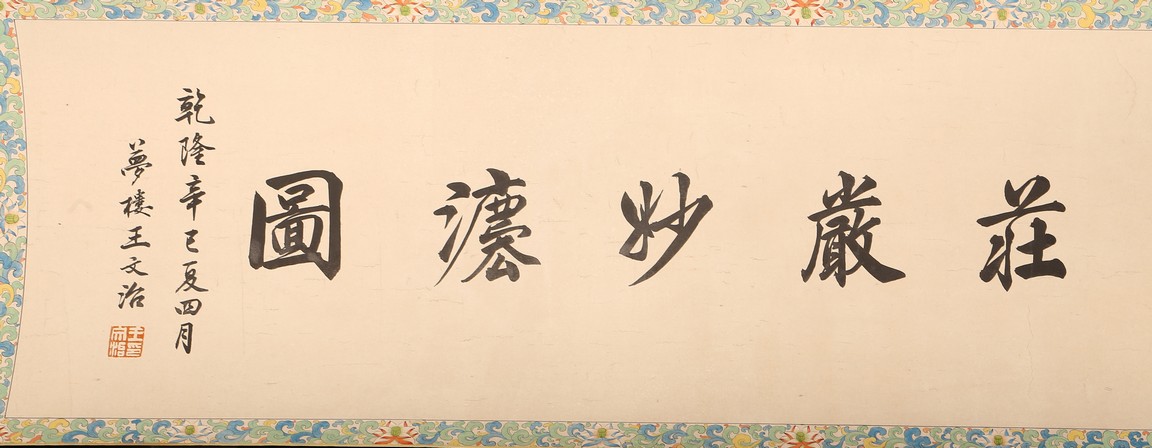 莊嚴妙灋圖
乾隆辛巳夏四月
夢樓王文治
王文治印